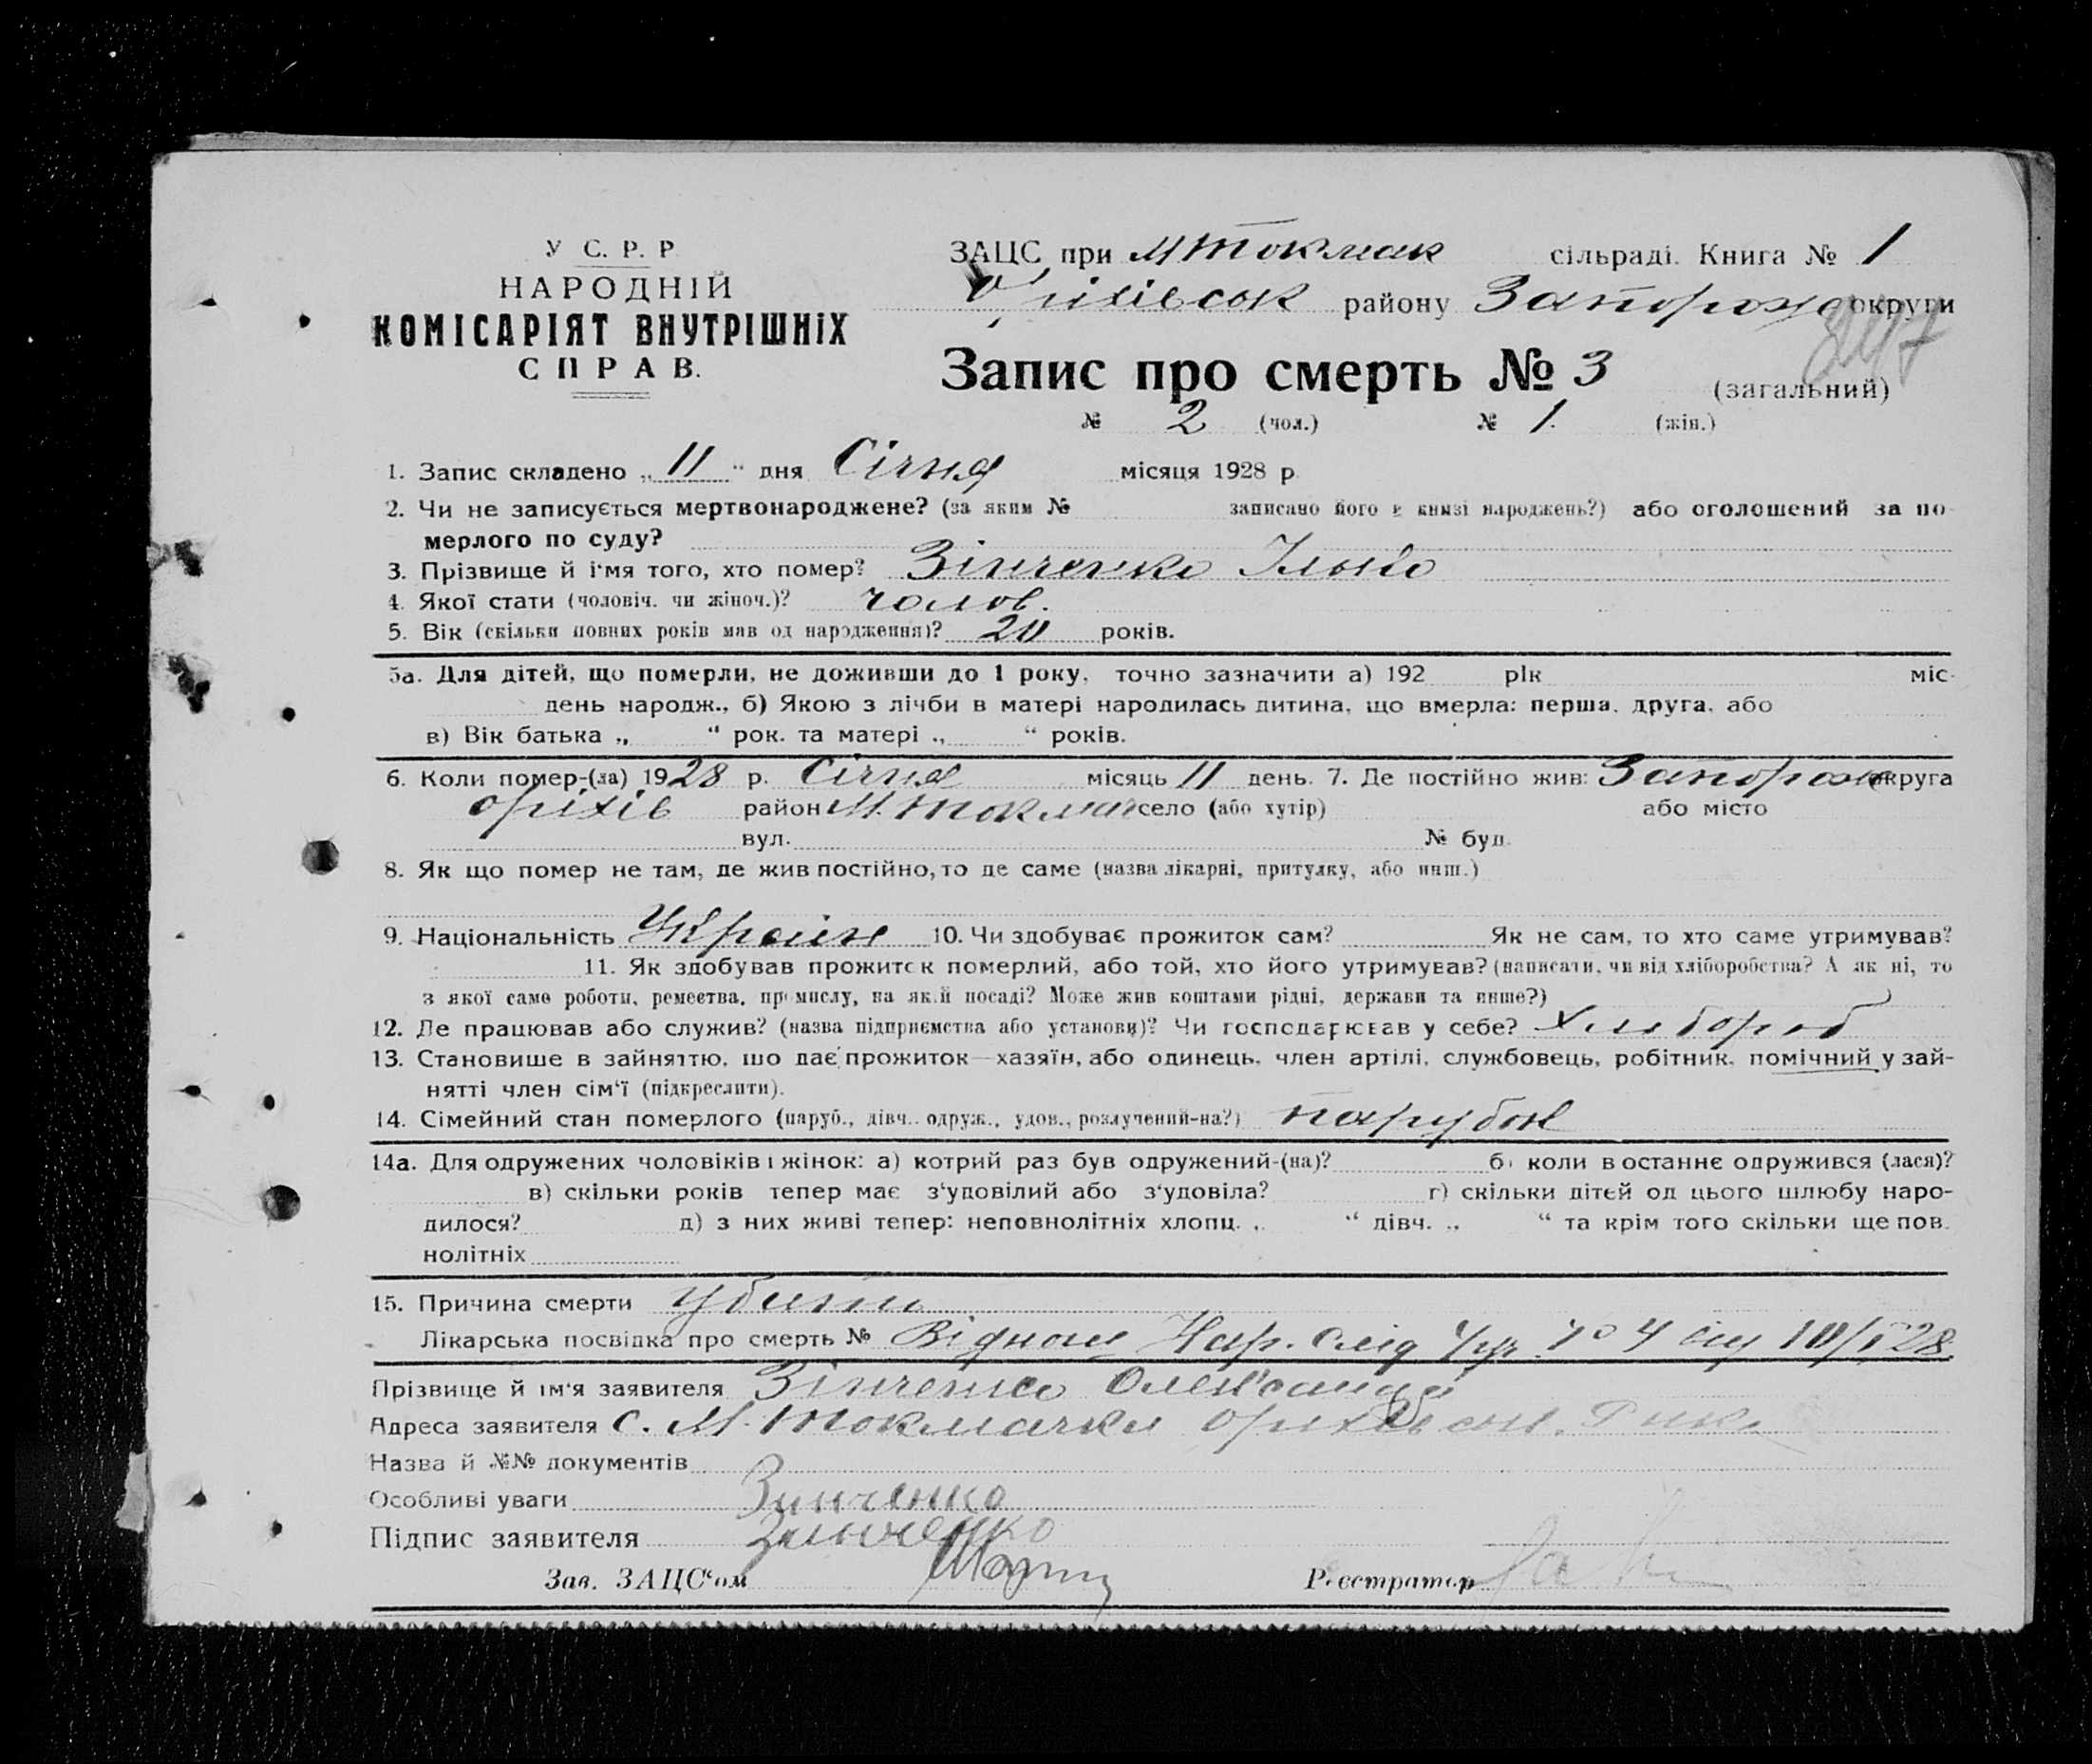 У С. Р. Р
НАРОДНІЙ
КОМІСАРІЯТ ВНУТРІШНІХ
СПРАВ.
ЗАЦС при М Токмак сільраді. Книга № 1
Оріхівськ району Запорож округи
Запис про смерть № 3 (загальний)
№ 2 (чол.) № 1. (жін.)
1. Запис складено „ 11 “ дня Січня місяця 1928 р
2. Чи не записується мертвонароджене? (за яким № записано його в книзі народжень?) або оголошений за по-
мерлого по суду?
3. Прізвище й і'мя того, хто помер? Зінченко Ілько
4. Якої стати (чоловіч. чи жіноч.)? чолов.
5. Вік (скільки повних років мав од народження)? 20 років.
5а. Для дітей, що померли, не доживши до 1 року, точно зазначити а) 192 рік міс-
день народж., б) Якою з лічби в матері народилась дитина, що вмерла: перша, друга, або
в) Вік батька „ “ рок. та матері „ “ років.
6. Коли помер-(ла) 1928 р. Січня місяць 11 день. 7. Де постійно жив: Запорож округа
оріхів район М. Токмач село (або хутір) або місто
вул. № буд.
8. Як що помер не там, де жив постійно, то де саме (назва лікарні, притулку, або инш.)
9. Національність Україн 10. Чи здобуває прожиток сам? Як не сам, то хто саме утримував?
11. Як здобував прожиток померлий, або той, хто його утримував? (написати, чи від хліборобства? А як ні, то
з якої саме роботи, ремества, промислу, на якій посаді? Може жив коштами рідні, держави та инше?)
12. Де працював або служив? (назва підприємства або установи)? Чи господарював у себе? Хлібороб
13. Становище в зайняттю, що дає прожиток—хазяїн, або одинець, член артілі, службовець, робітник, помічний у зай-
нятті член сім'ї (підкреслити).
14. Сімейний стан померлого (паруб., дівч., одруж., удов., розлучений-на?) парубок
14а. Для одружених чоловіків і жінок: а) котрий раз був одружений-(на)? б) коли в останнє одружився (лася)?
в) скільки років тепер має з'удовілий або з'удовіла? г) скільки дітей од цього шлюбу наро-
дилося? д) з них живі тепер: неповнолітніх хлопц. „ “ дівч. „ “ та крім того скільки ще пов.
нолітніх
15. Причина смерти убити
Лікарська посвідка про смерть № Віднош Нар. Слід 10/I 28.
Прізвище й ім'я заявителя Зінченко Олександ
Адреса заявителя с. М. Токмачки Оріхівськ. Рика
Назва й №№ документів
Особливі уваги Зинченко
Підпис заявителя Зинченко
Зав. ЗАЦС'ом
Реєстратор